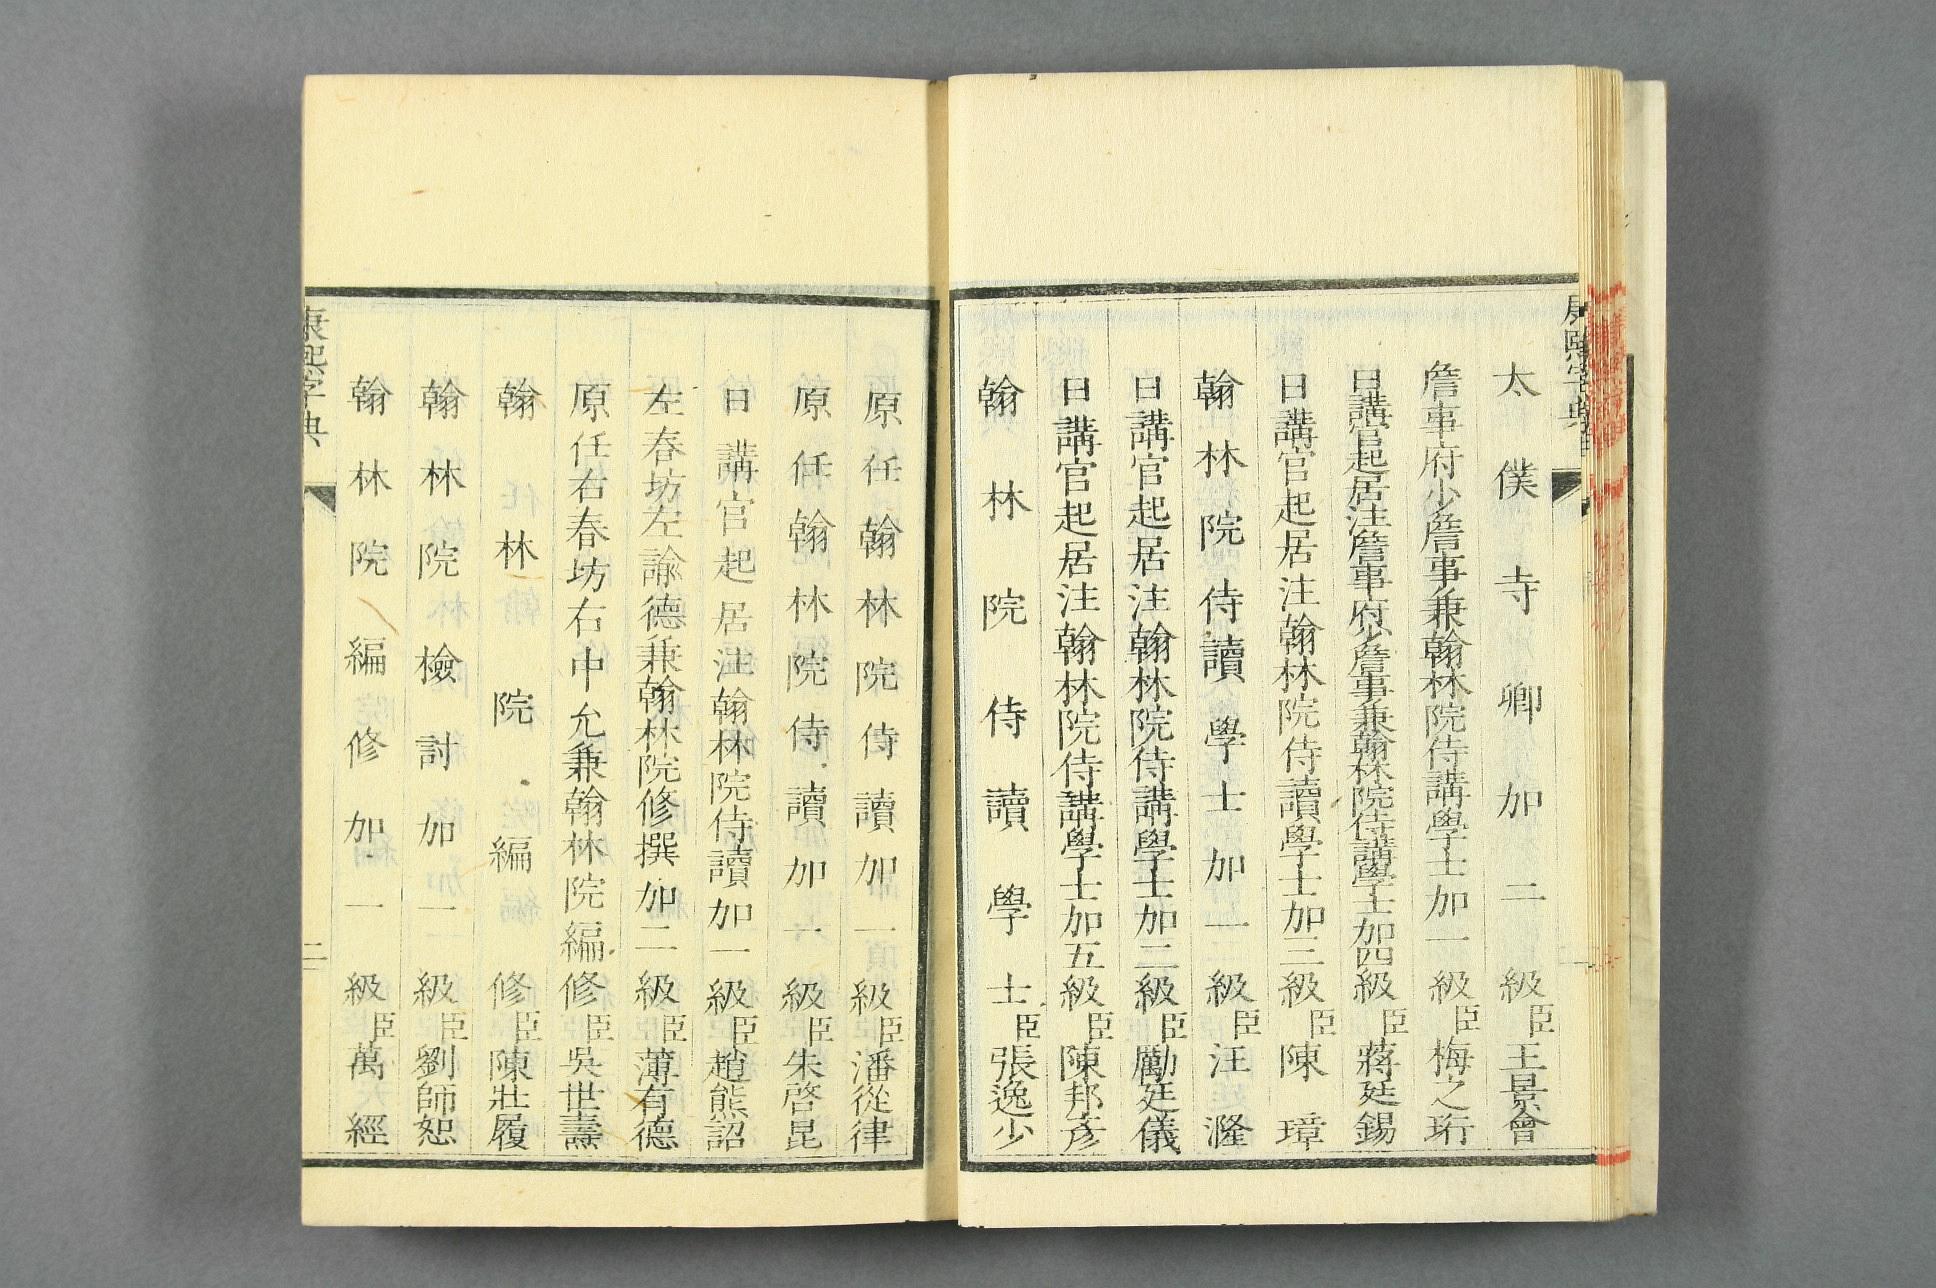 康熙字典
太僕寺卿加二級臣王景曾
詹事府少詹事兼翰林院侍講學士加一級臣梅之珩
日講官起居注詹事府少詹事兼翰林院侍講學士加四級臣蔣廷錫
日講官起居注翰林院侍讀學士加三級臣陳璋
翰林院侍讀學士加一級臣汪漋
日講官起居注翰林院侍講學士加二級臣勵廷儀
日講官起居注翰林院侍講學士加五級臣陳邦彥
翰林院侍讀學士臣張逸少
原任翰林院侍讀加一級臣潘從律
原任翰林院侍讀加一級臣朱啓昆
日講官起居注翰林院侍讀加一級臣趙熊詔
左春坊左諭德兼翰林院修撰加二級臣薄有德
原任右春坊右中允兼翰林院編修臣吳世燾
翰林院編修臣陳壯履
翰林院檢討加二級臣劉師恕
翰林院編修加一級臣萬經
康熙字典
二